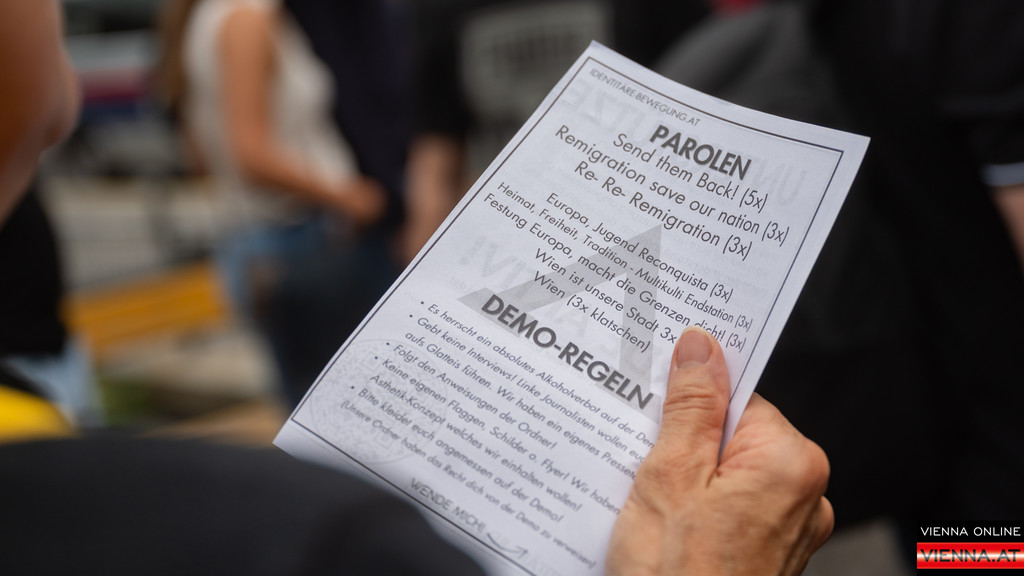 IDENTITÄRE-BEWEGUNG.AT
PAROLEN
Send them Back! (5x)
Remigration save our nation (3x)
Re- Re- Remigration (3x)
Europa, Jugend Reconquista (3x)
Heimat, Freiheit, Tradition - Multikulti Endstation (3x)
Festung Europa, macht die Grenzen dicht! (3x)
Wien ist unsere Stadt 3x
Wien (3x klatschen)
DEMO-REGELN
• Es herrscht ein absolutes Alkoholverbot auf der
• Gebt keine Interviews! Linke Journalisten wollen
aufs Glatteis führen. Wir haben ein eigenes
• Folgt den Anweisungen der Ordner!
• Keine eigenen Flaggen, Schilder o. Flyer! Wir haben
Ästhetik-Konzept welches wir einhalten wollen!
• Bitte kleidet euch angemessen auf der Demo!
(Unsere Ordner haben das Recht dich von der Demo zu verweisen)
WENDE MICH!
VIENNA ONLINE
VIENNA.AT